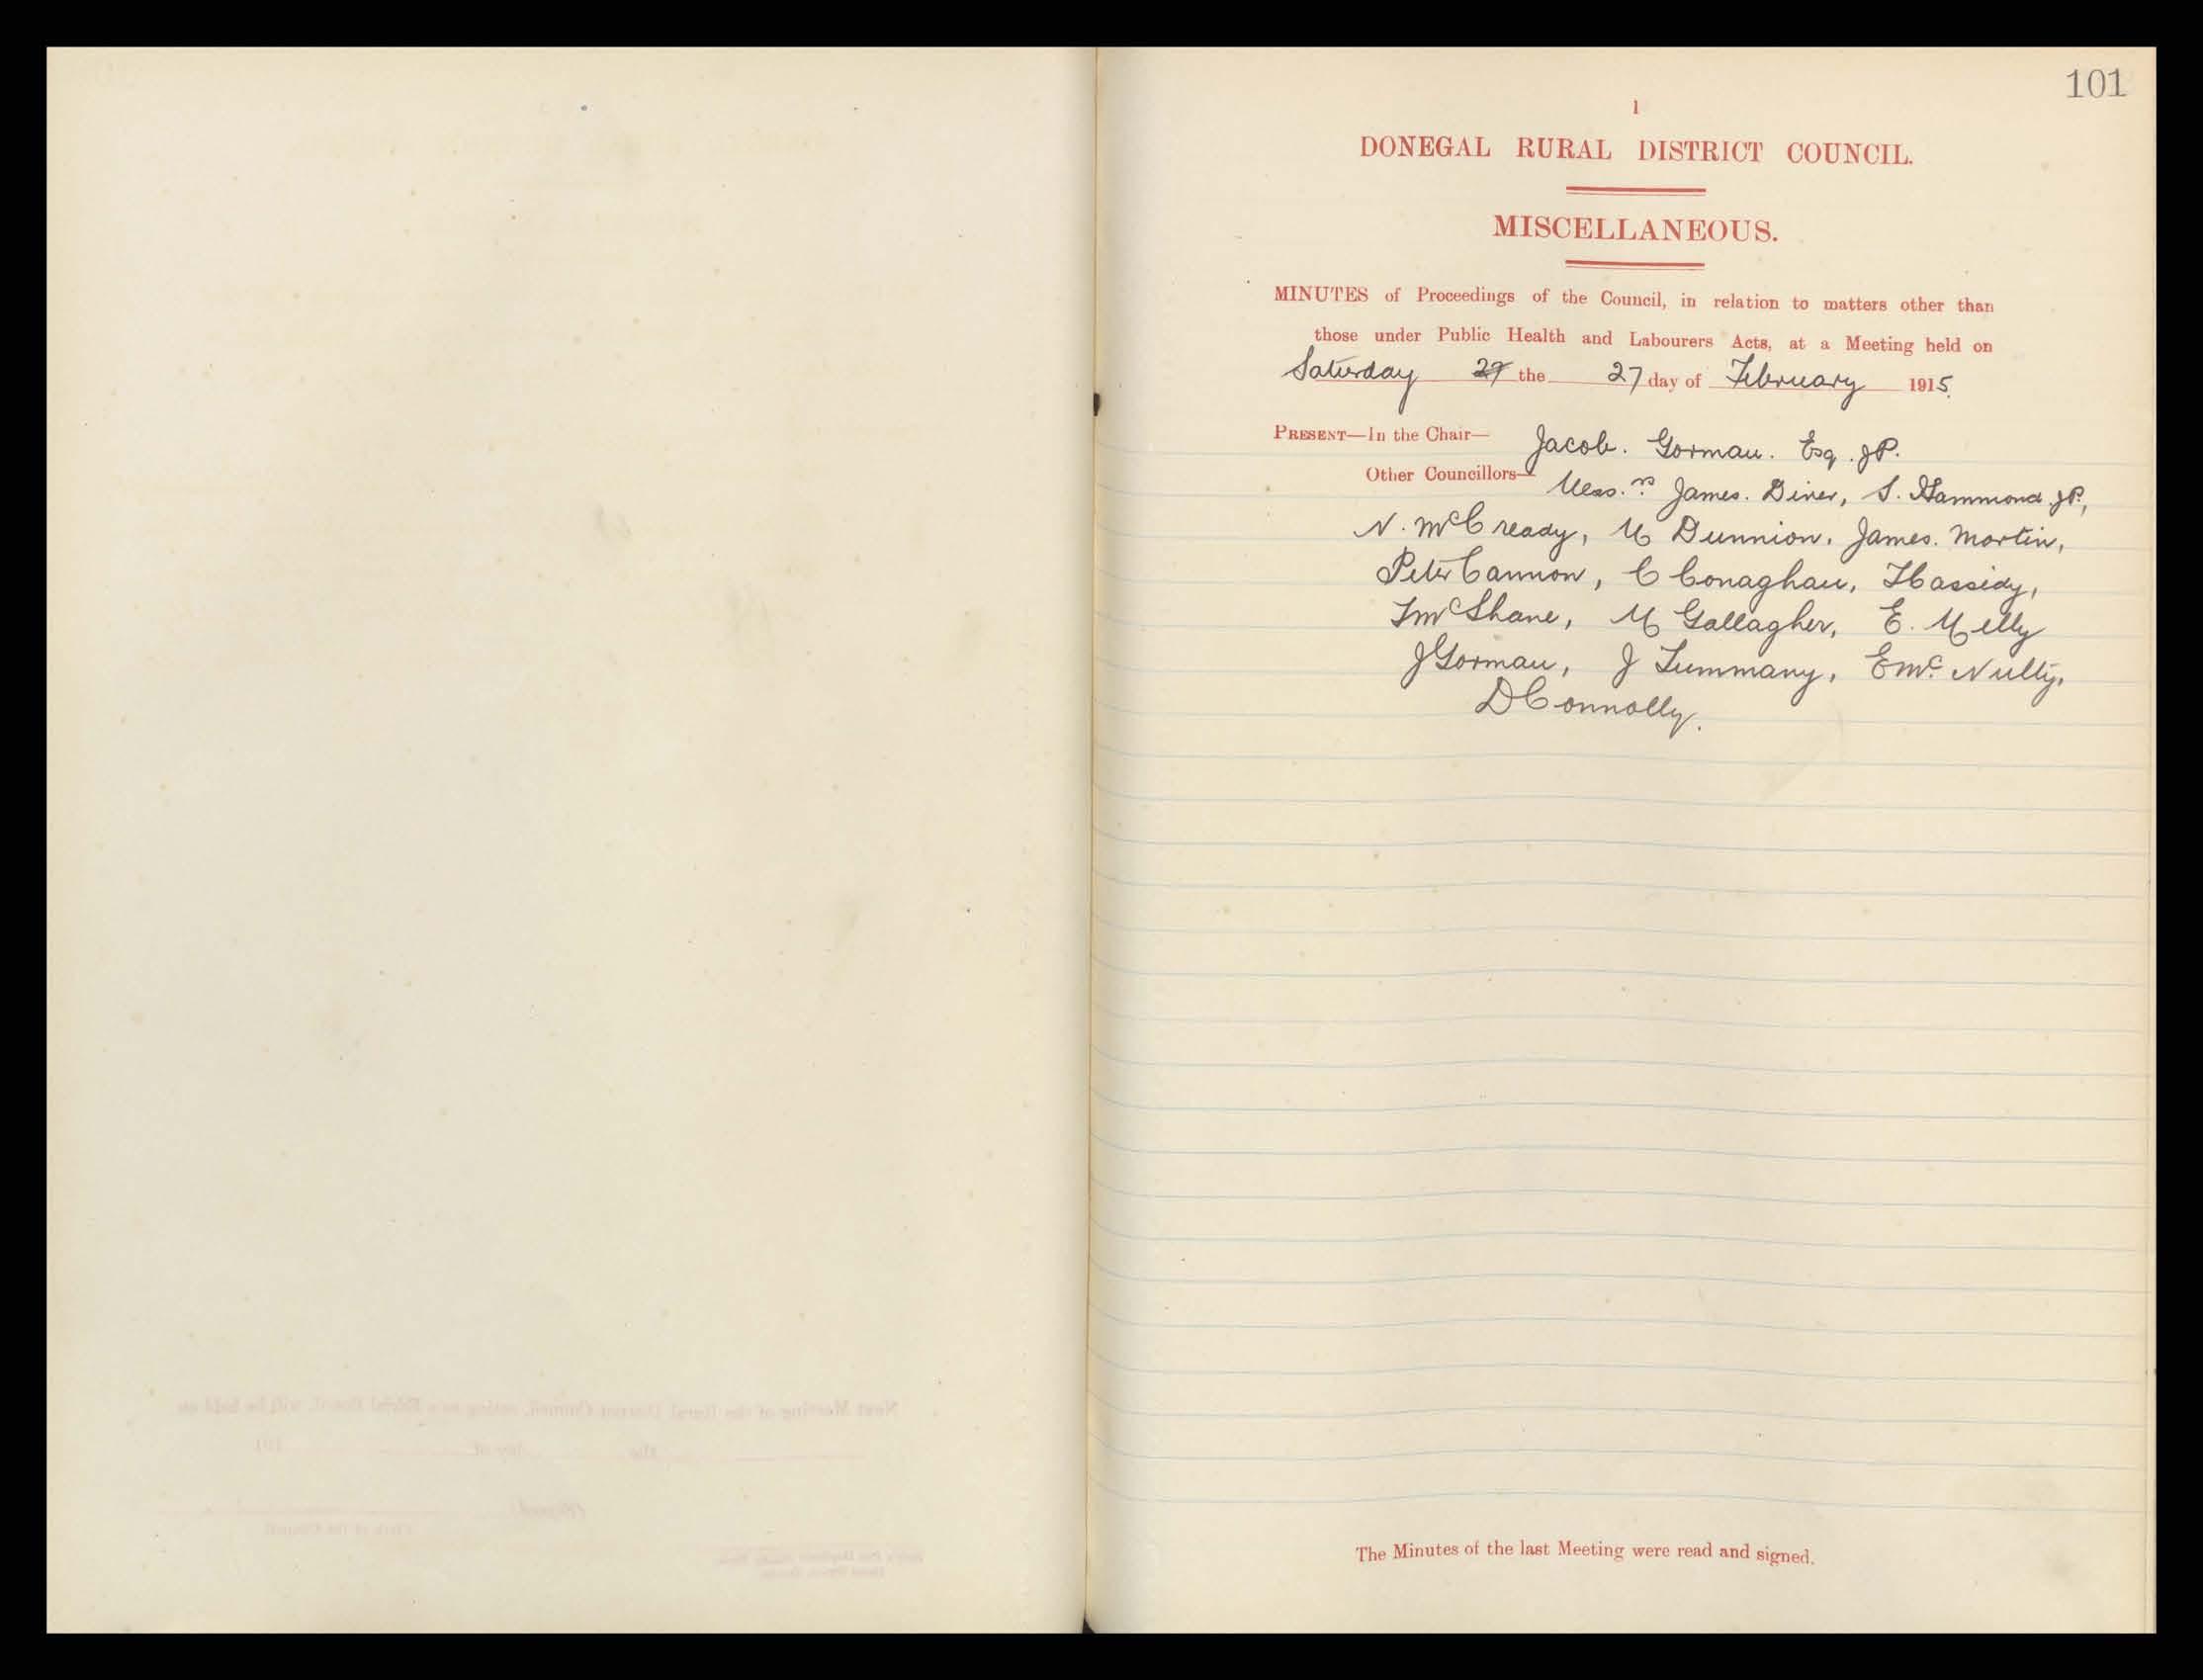 101
1
DONEGAL RURAL DISTRICT COUNCIL.
MISCELLANEOUS.
MINUTES of Proceedings of the Council, in relation to matters other than
those under Public Health and Labourers Acts, at a Meeting held on
Saturday 27 the 27 day of February 1915.
PRESENT—In the Chair— Jacob. Gorman. Esq. JP.
Other Councillors— Mess.rs James. Diver, S. Hammond JP.,
N. McCready, M Dunnion, James. Martin,
Peter Cannon, C Conaghan, F Cassidy,
F McShane, M Gallagher, E. Melly
J Gorman, J Timmany, E Mc Nulty,
D Connolly.
The Minutes of the last Meeting were read and signed.
Next Meeting of the Rural District Council, will be held on
the day of 191
(Signed)
Clerk of the Council